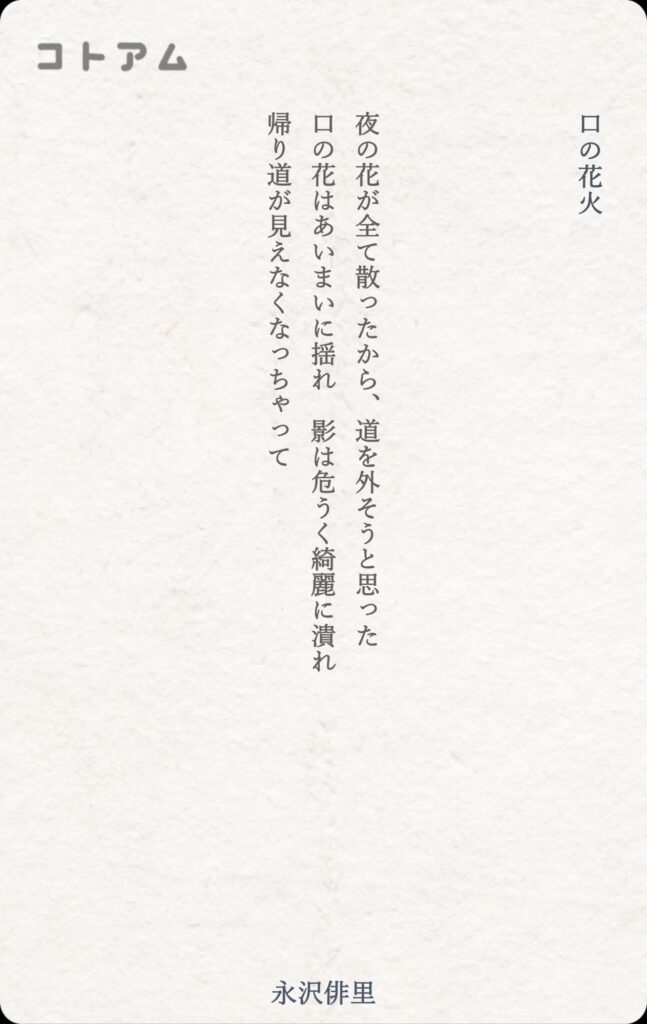 コトアム
口の花火
夜の花が全て散ったから、道を外そうと思った
口の花はあいまいに揺れ　影は危うく綺麗に潰れ
帰り道が見えなくなっちゃって
永沢俳里